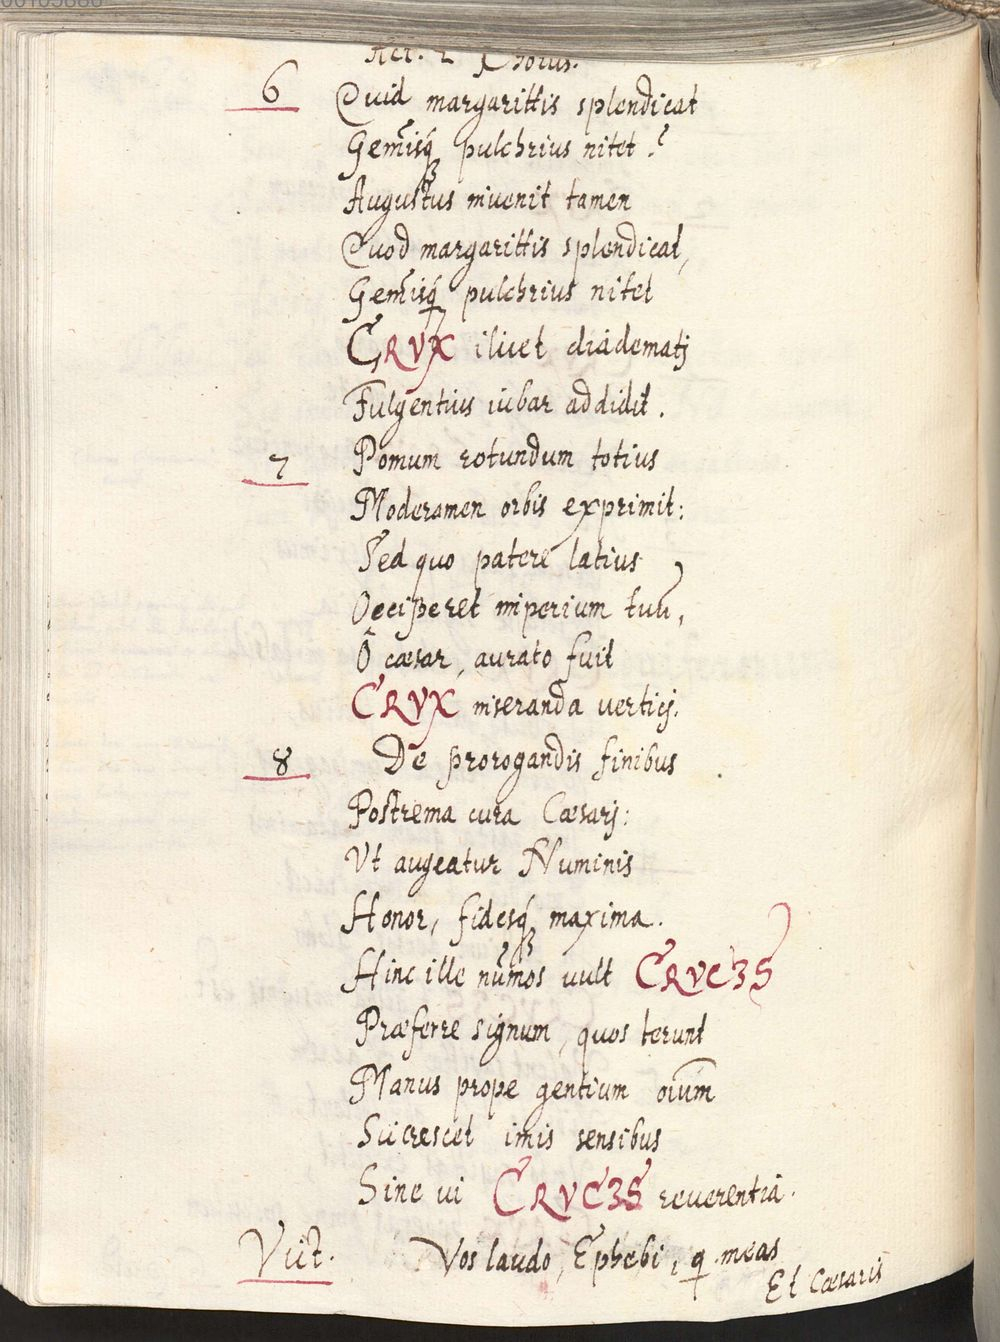 Act. 2 Chorus.
6 Quid margarittis splendicat
Gem̃isq́ pulchrius nitet?
Augustus invenit tamen
Quod margarittis splendicat,
Gem̃isq́ pulchrius nitet
CRVX iluet diadematj
Fulgentius iubar addidit.
7 Pomum rotundum totius
Moderamen orbis exprimit:
Sed quo patere latius
Occiperet imperium tuũ,
Ô cæsar, aurato fuit
CRVX inseranda verticj.
8 De prorogandis finibus
Postrema cura Cæsarj:
Vt augeatur Numinis
Honor, fidesq́ maxima.
Hinc ille num̃os uult CRVCJS
Præferre signum, quos terunt
Manus prope gentium oium̃
Sucrescet imis sensibus
Sine ui CRVCJS reuerentia.
Vict. Vos laudo, Ephebi, q meas
Et Cæsaris